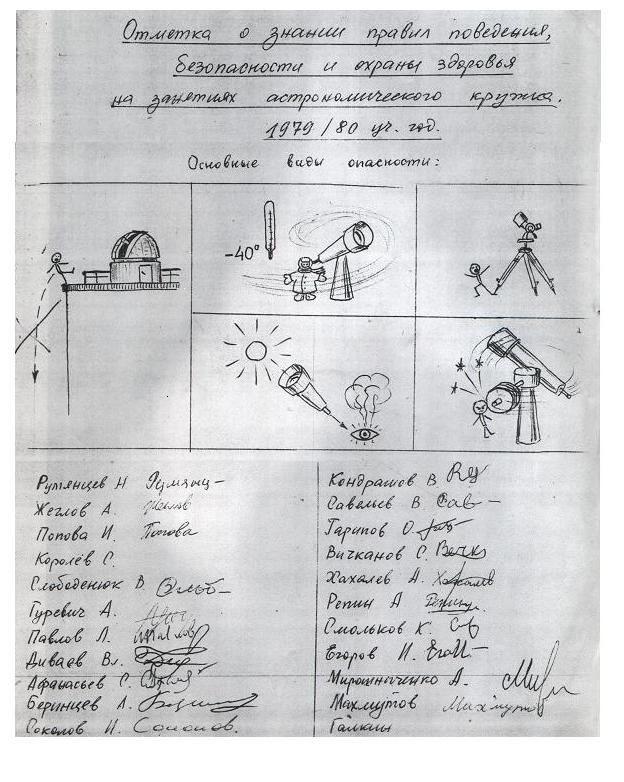 Отметка о знании правил поведения,
безопасности и охраны здоровья
на занятиях астрономического кружка.
1979/80 уч. год.
Основные виды опасности:
-40°
Румянцев Н
Жеглов А.
Попова И. Попова
Королёв С.
Слободенюк В.
Гуревич А.
Павлов Л. Павлов
Диваев Вл.
Афанасьев С.
Беринцев А.
Соколов И. Соколов.
Кондрашов В
Савельев В. Сав
Гарипов О.
Вичканов С. Вичк
Хахалев А. Хахалев
Репин А Репин
Смольков К.
Егоров И. Его
Мирошниченко А. Мир
Махмутов Махмутов
Галкин